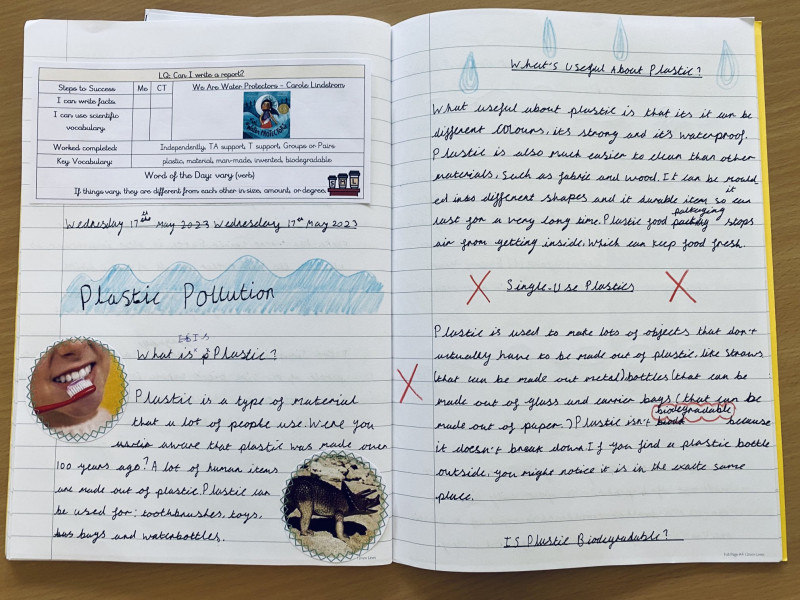 LQ: Can I write a report?
Steps to Success Me CT We Are Water Protectors – Carole Lindstrom
I can write facts.
I can use scientific
vocabulary.
Worked completed: Independently, TA support, T support, Groups or Pairs
Key Vocabulary: plastic, material, man-made, invented, biodegradable
Word of the Day: vary (verb)
If things vary, they are different from each other in size, amount, or degree.
Wednesday 17th May 2023 Wednesday 17th May 2023
Plastic Pollution
What is Plastic?
Plastic is a type of material
that a lot of people use. Were you
aware that plastic was made over
100 years ago? A lot of human items
are made out of plastic. Plastic can
be used for: toothbrushes, toys,
bus bags and waterbottles.
What's Useful About Plastic?
What useful about plastic is that its it can be
different colours, its strong and it's waterproof.
Plastic is also much easier to clean than other
materials, such as fabric and wood. It can be mould
it
ed into different shapes and it durable item so can
packaging
last for a very long time. Plastic food packing stops
air from getting inside, which can keep food fresh.
Single-Use Plastics
Plastic is used to make lots of objects that don't
actually have to be made out of plastic, like straws
(that can be made out metal) bottles (that can be
made out of glass and carrier bags (that can be
biodegradable
made out of paper.) Plastic isn't because
it doesn't break down. If you find a plastic bottle
outside, you might notice it is in the exacte same
place.
Is Plastic Biodegradable?